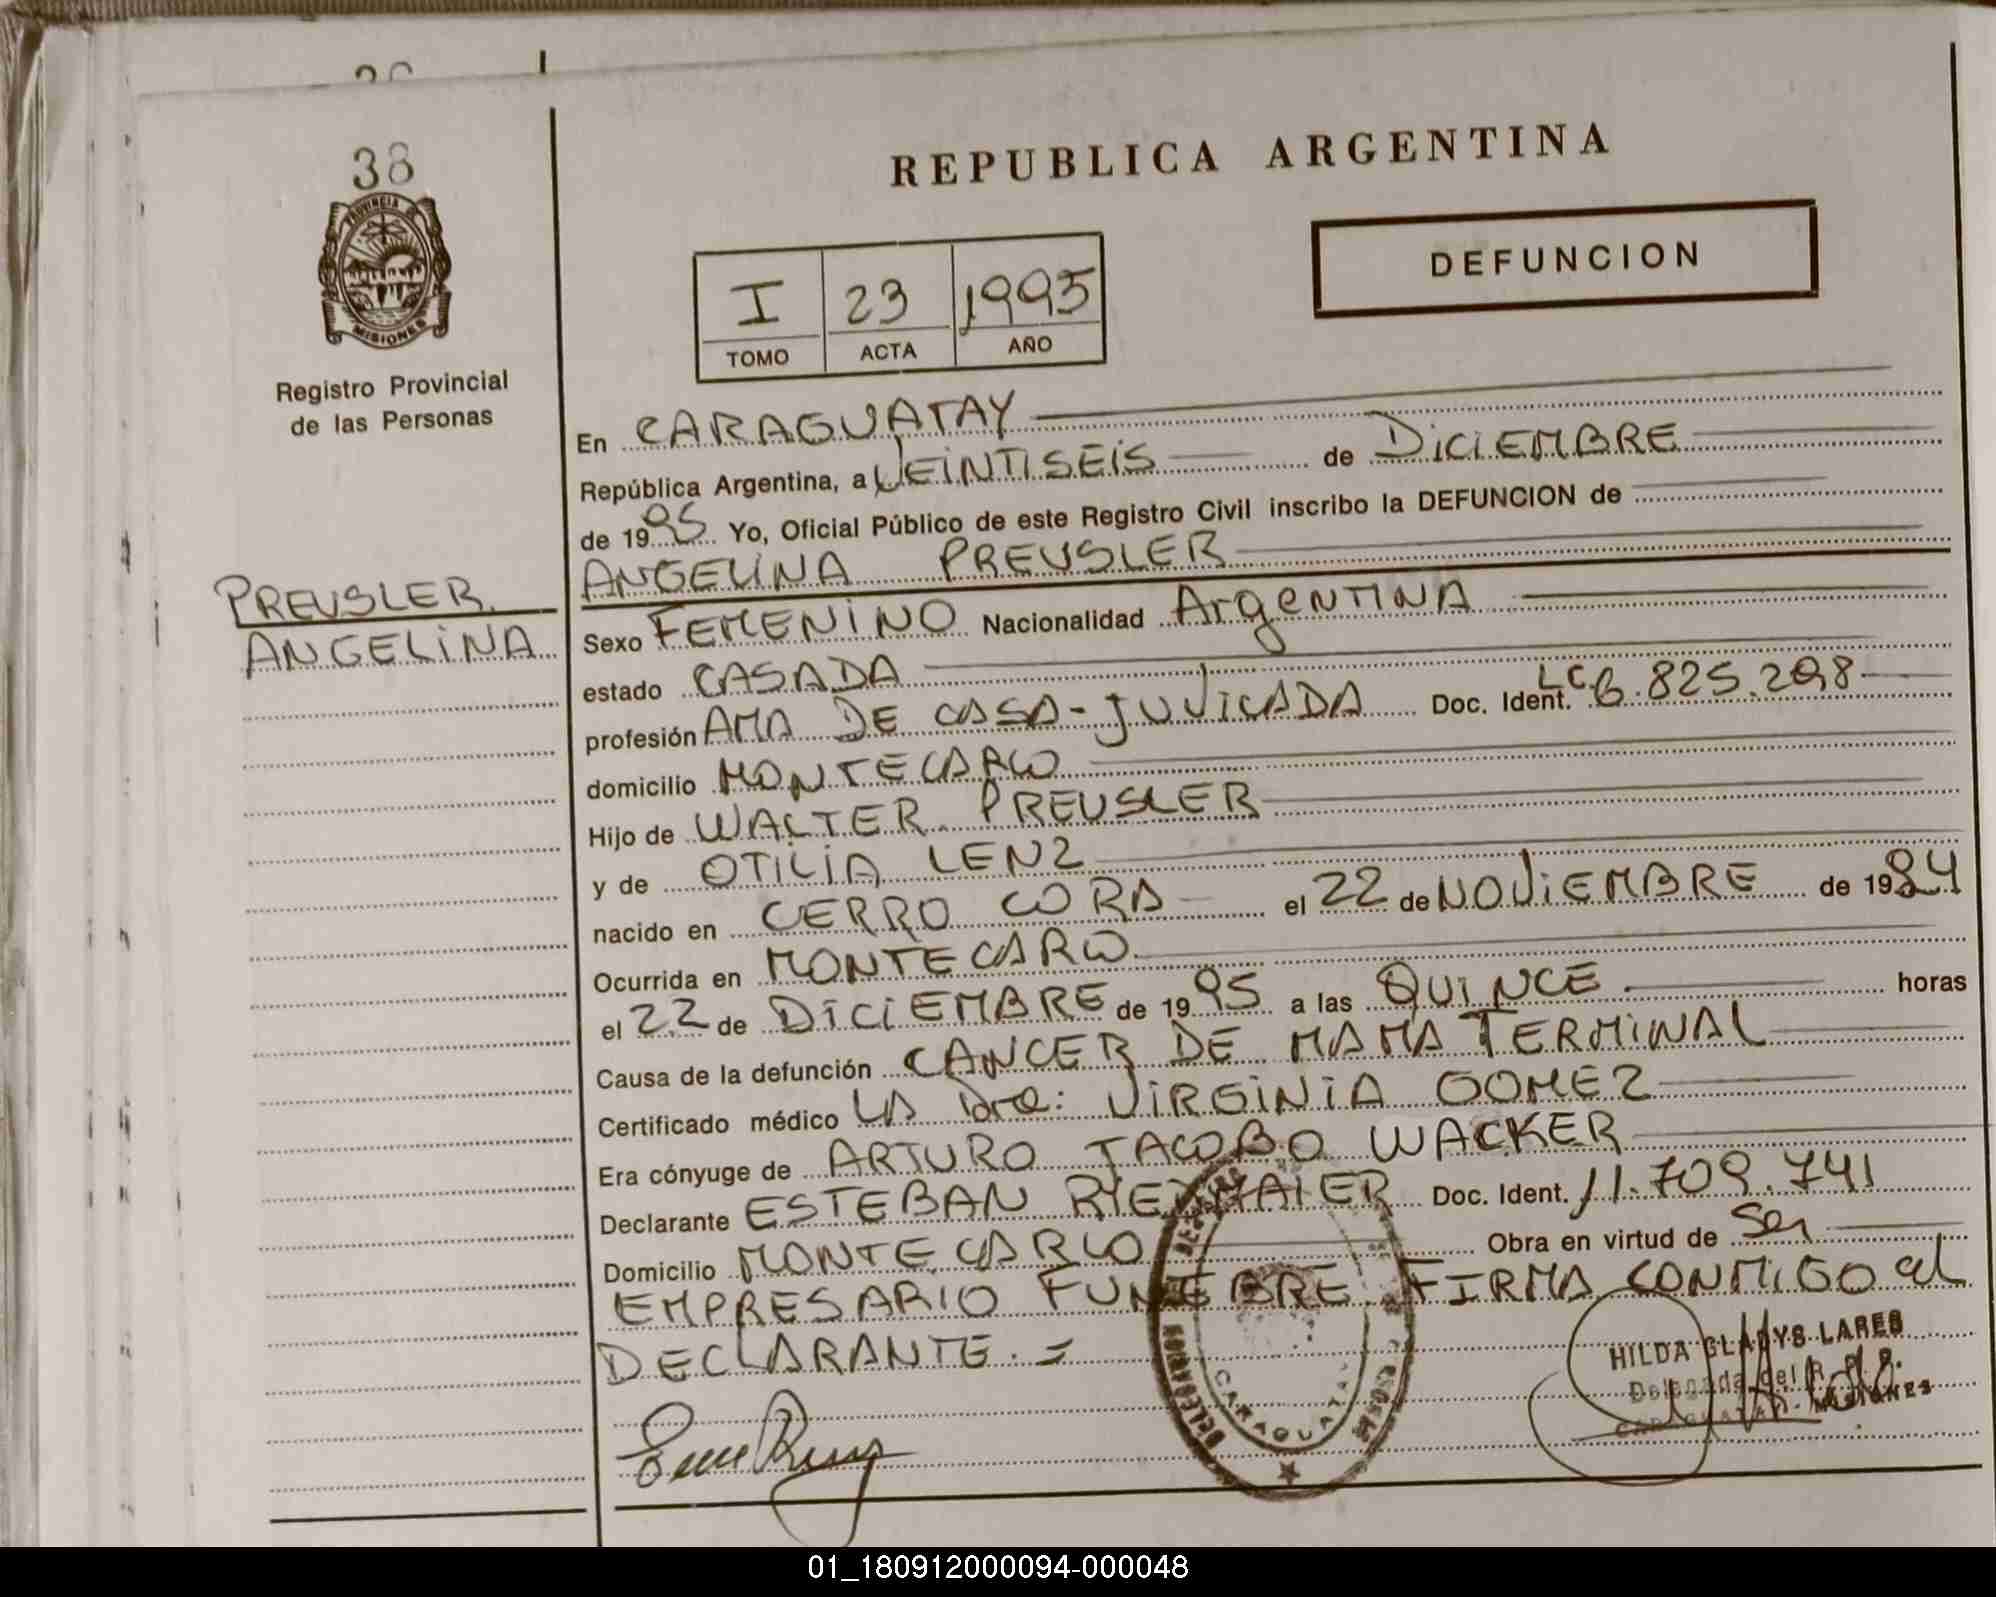 38
PROVINCIA DE
MISIONES
Registro Provincial
de las Personas
PREUSLER
ANGELINA
REPUBLICA ARGENTINA
DEFUNCION
I 23 1995
TOMO ACTA AÑO
En CARAGUATAY
República Argentina, a VEINTISEIS de DICIEMBRE
de 1995 Yo, Oficial Público de este Registro Civil inscribo la DEFUNCION de
ANGELINA PREUSLER
Sexo FEMENINO Nacionalidad ArgeNTINA
estado CASADA
profesión AMA DE CASA-JUVICADA Doc. Ident. LC 6.825.298
domicilio MONTECARLO
Hijo de WALTER PREUSLER
y de OTILIA LENZ
nacido en CERRO CORA el 22 de NOVIEMBRE de 19
Ocurrida en MONTECARLO
el 22 de DICIEMBRE de 1995 a las QUINCE horas
Causa de la defunción CANCER DE MAMA TERMINAL
Certificado médico LA Dra: VIRGINIA GOMEZ
Era cónyuge de ARTURO JACOBO WACKER
Declarante ESTEBAN Doc. Ident. 11.709.741
Domicilio MONTECARLO Obra en virtud de Ser
EMPRESARIO FUNEBRE. FIRMA CONMIGO el
DECLARANTE.=
CARAGUATAY
HILDA GLADYS LARES
Delegada del R. P. P.
CARAGUATAY - MISIONES
01_180912000094-000048